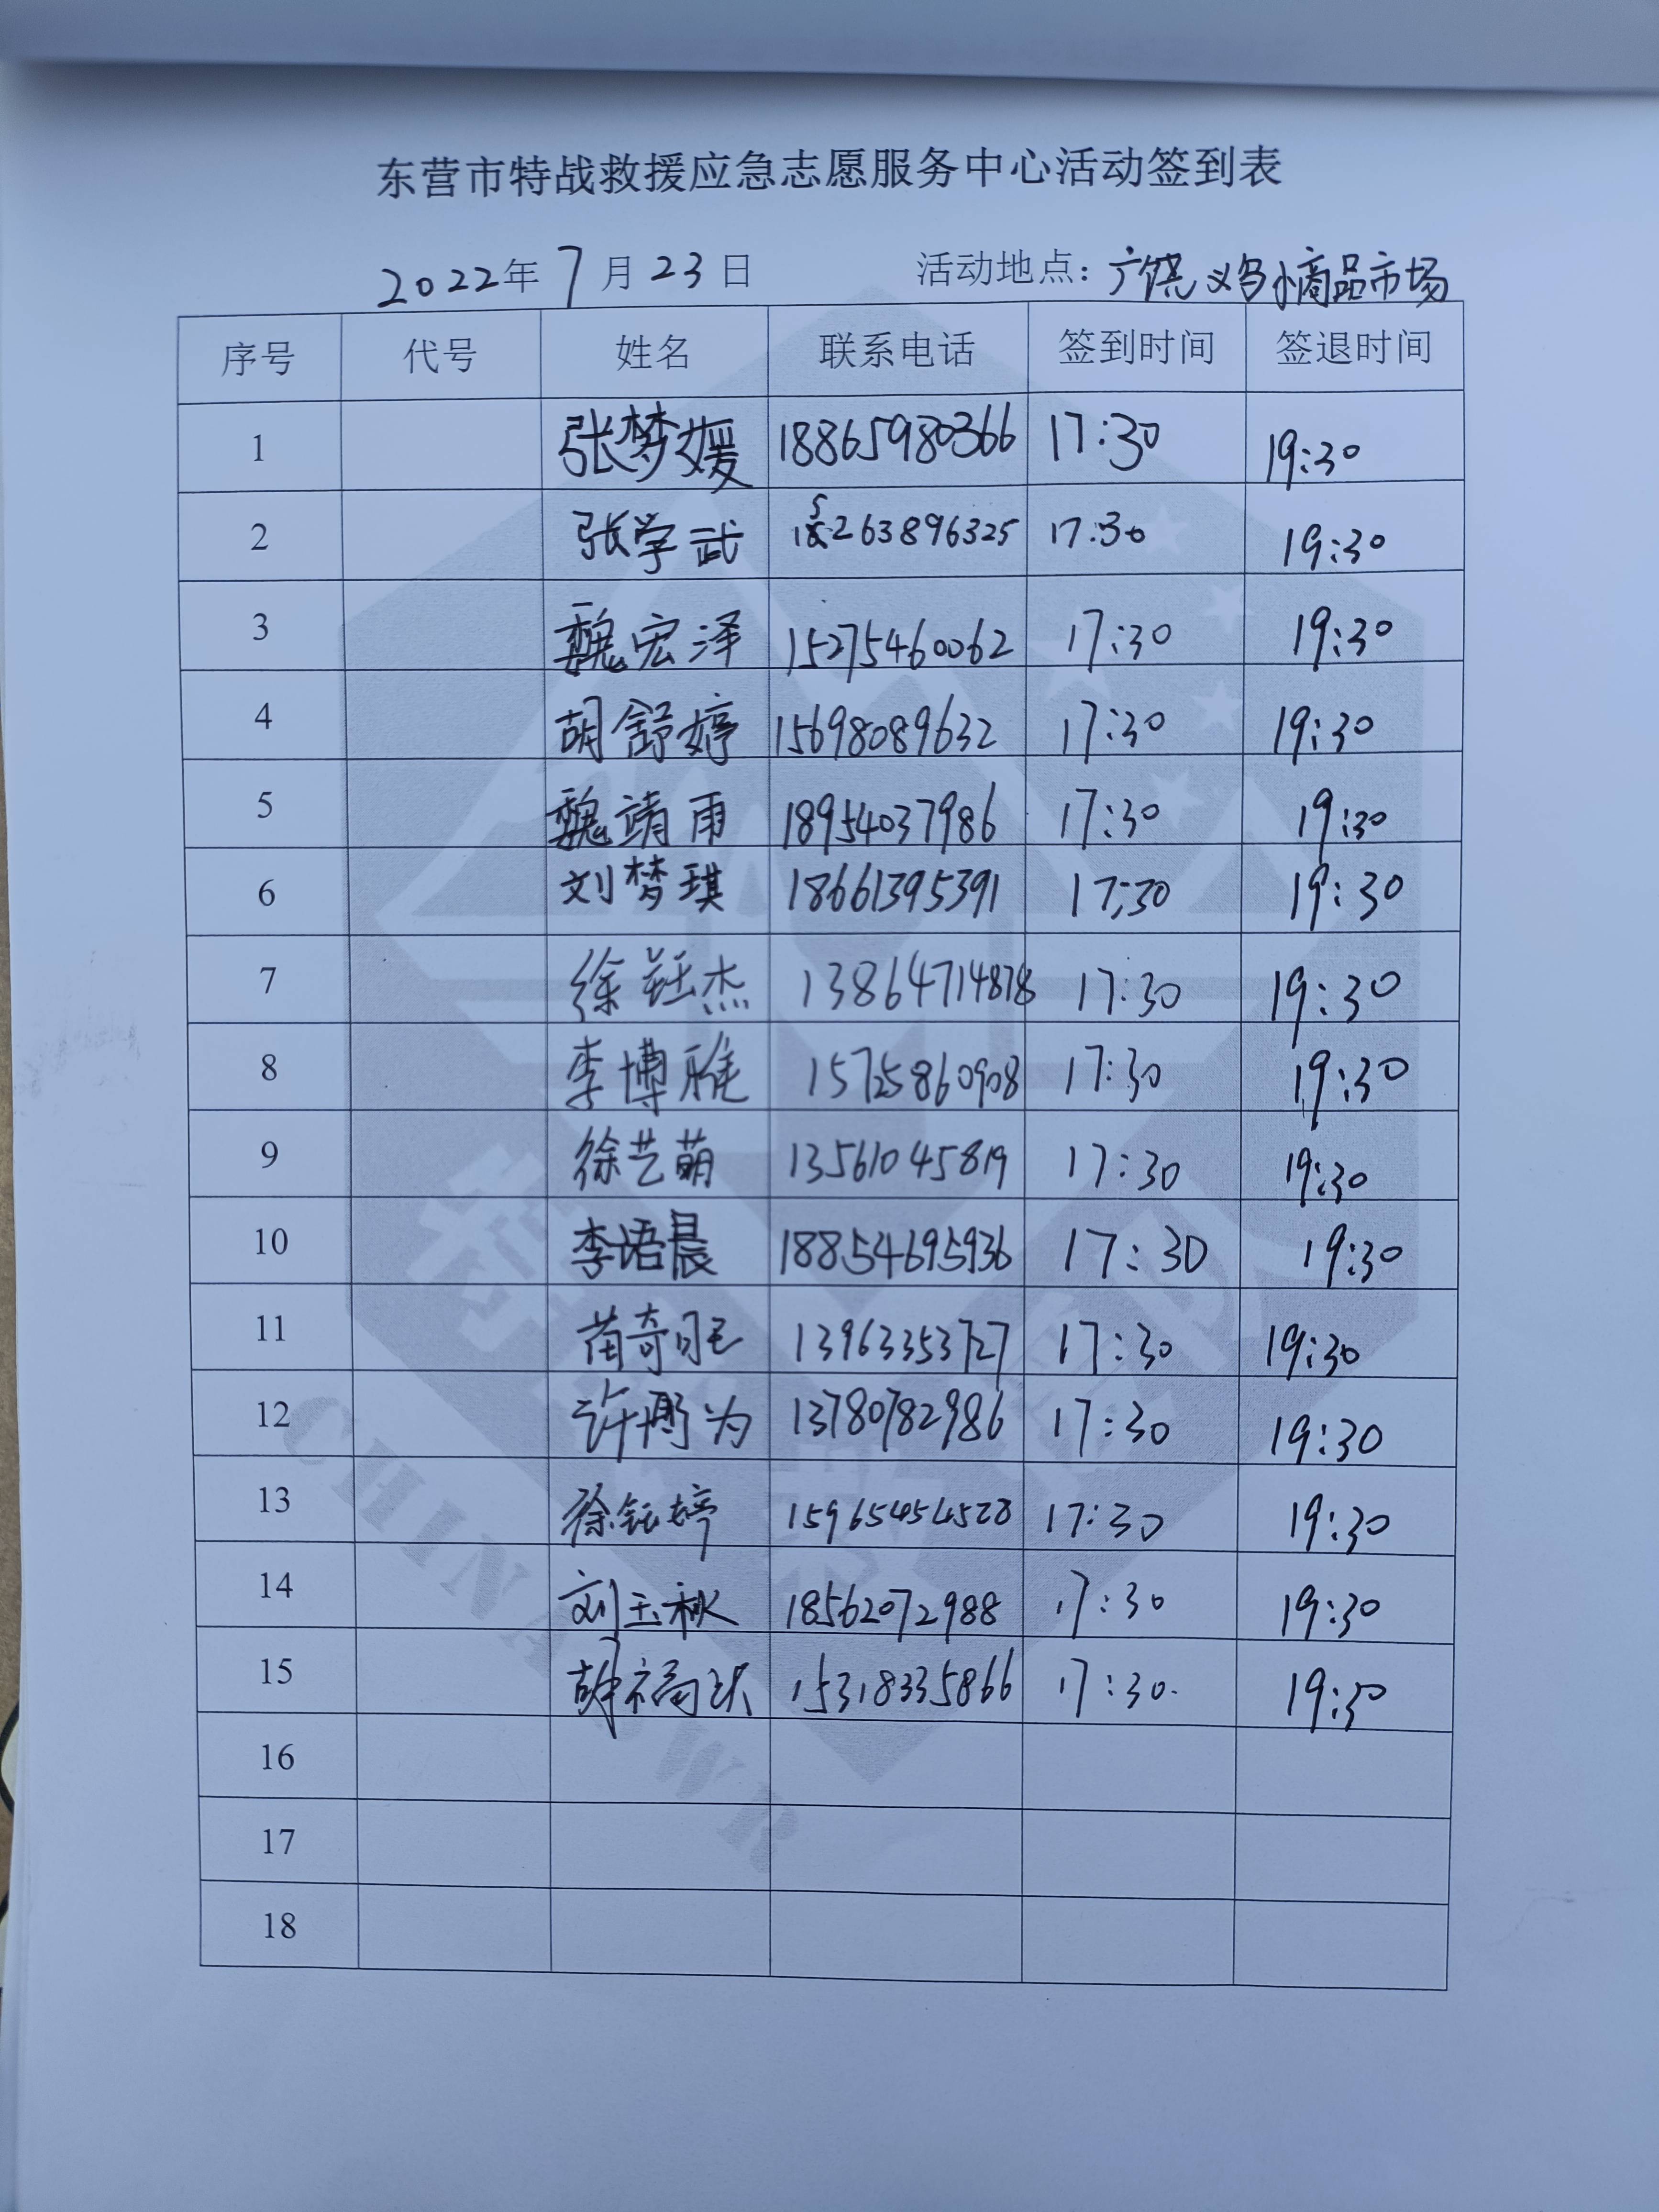 东营市特战救援应急志愿服务中心活动签到表
2022年 7月 23日 活动地点：广饶义乌小商品市场
序号 代号 姓名 联系电话 签到时间 签退时间
1 张梦媛 18865980366 17:30 19:30
2 张学武 15263896325 17:30 19:30
3 魏宏泽 15275460062 17:30 19:30
4 胡舒婷 15698089632 17:30 19:30
5 魏靖雨 18954037986 17:30 19:30
6 刘梦琪 18661395391 17:30 19:30
7 徐钰杰 13864714878 17:30 19:30
8 李博雅 15725860908 17:30 19:30
9 徐艺萌 13561045819 17:30 19:30
10 李语晨 18854695936 17:30 19:30
11 苗奇 13963353727 17:30 19:30
12 许博为 13780782986 17:30 19:30
13 徐钰婷 15965454528 17:30 19:30
14 刘玉秋 18562072988 17:30 19:30
15 福 15318335866 17:30 19:30
16
17
18
CHINA SWR